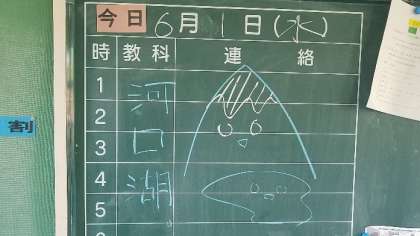 今日 6月1日(水)
時 教科 連絡
1
2
3
4
5
河
口
湖
割